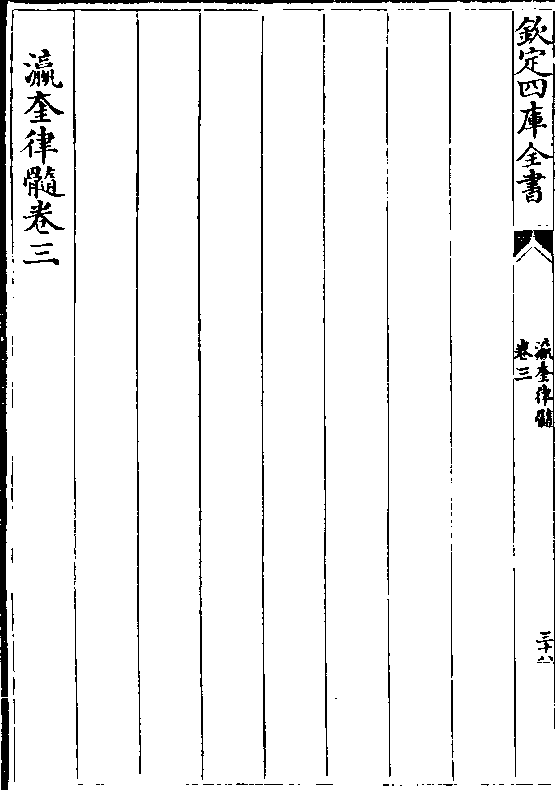 欽定四庫全書
瀛奎律髓
卷三
三十八
瀛奎律髓卷三